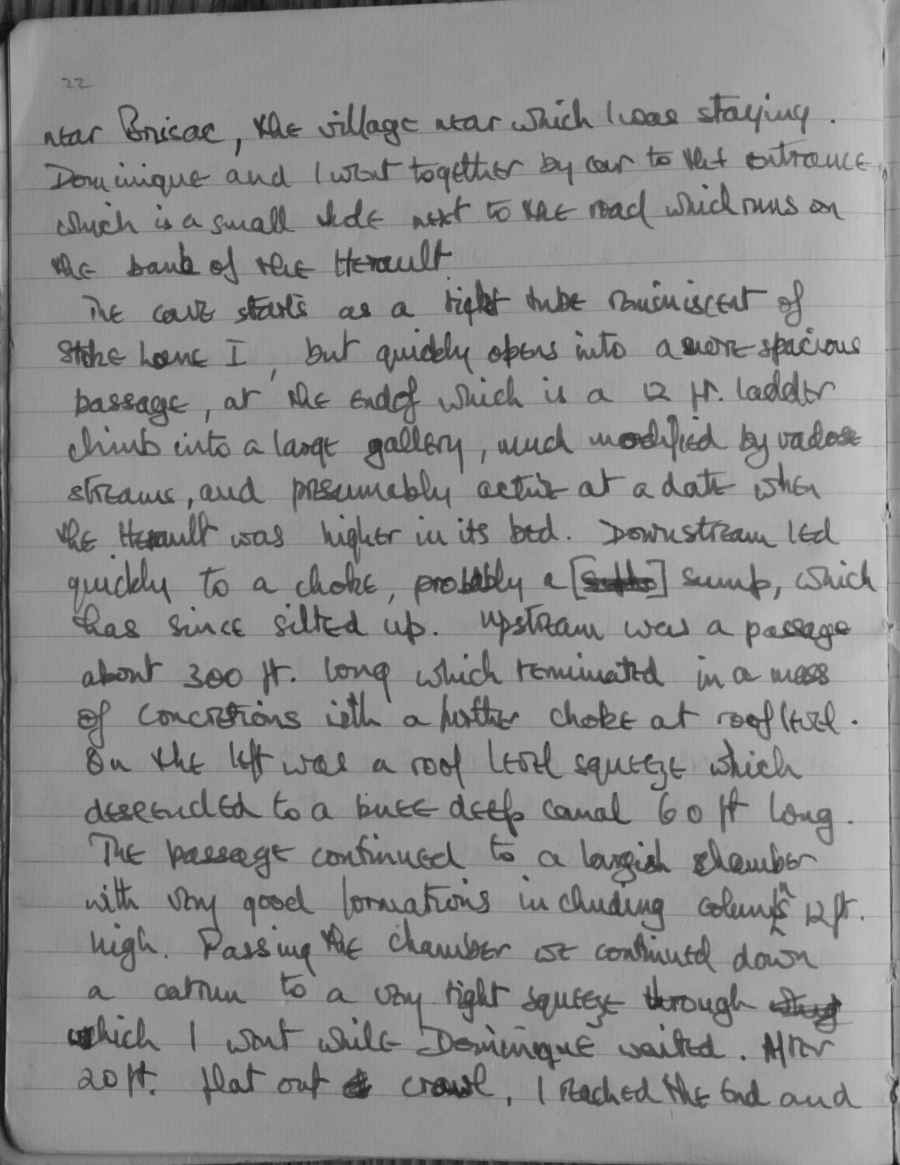 22
near Brisac, the village near which I was staying.
Dominique and I went together by car to the entrance,
which is a small hole next to the road which runs on
the bank of the Herault
The cave starts as a tight tube reminiscent of
Stoke Lane I, but quickly opens into a more spacious
passage, at the end of which is a 12 ft. ladder
climb into a large gallery, much modified by vadose
streams, and presumably active at a date when
the Herault was higher in its bed. Downstream led
quickly to a choke, probably a [] sump, which
has since silted up. Upstream was a passage
about 300 ft. long which terminated in a mass
of concretions with a further choke at roof level.
On the left was a roof level squeeze which
descended to a knee deep canal 60 ft long.
The passage continued to a largish chamber
with very good formations including columns 12 ft.
high. Passing the chamber we continued down
a to a very tight squeeze through
which I went while Dominique waited. After
20 ft. flat out crawl, I reached the end and